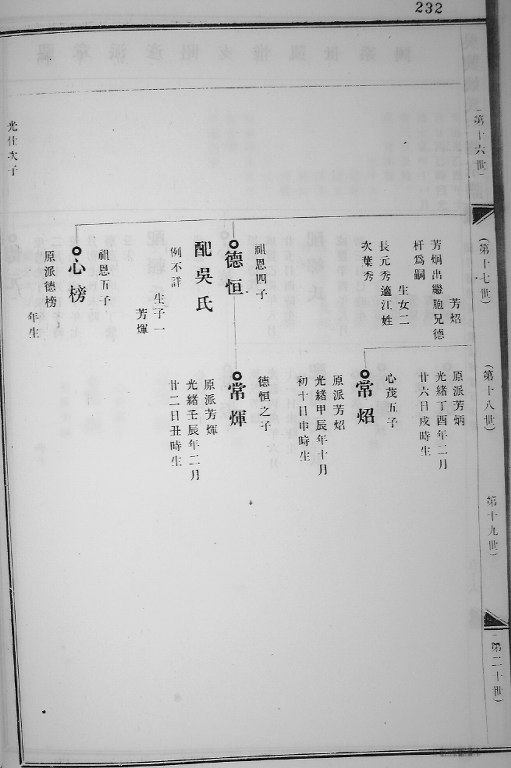 232
(第十六世)
(第十七世)
(第十八世)
第十九世)
(第二十世)
光仕次子
芳炤
芳炳出繼胞兄德
杆爲嗣
生女二
長元秀適江姓
次葉秀
祖恩四子
德恒
配吳氏
例不詳
生子一
芳煇
祖恩五子
心榜
原派德榜
年生
原派芳炳
光緒丁酉年二月
廿六日戍時生
心茂五子
常炤
原派芳炤
光緒甲辰年十月
初十日申時生
德恒之子
常煇
原派芳煇
光緒壬辰年二月
廿二日丑時生